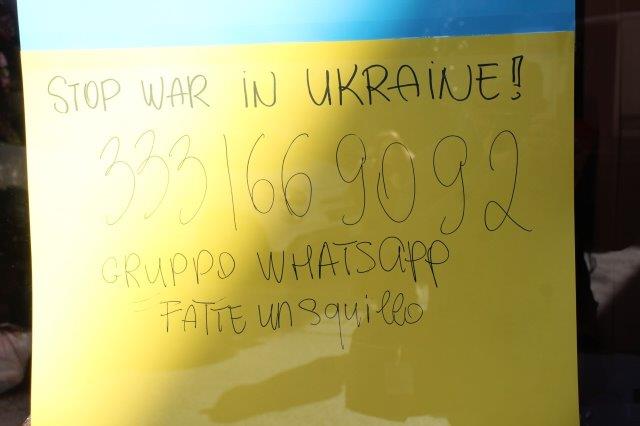 STOP WAR IN UKRAINE!!
333 166 90 92
GRUPPO WHATSAPP
FATTE UN SQUILLO